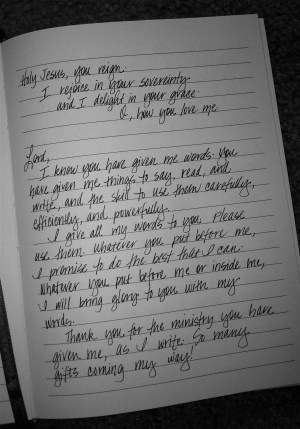 Holy Jesus, you reign.
I rejoice in your sovereinty
and I delight in your grace.
O, how you love me
Lord,
I know you have given me words. You
have given me things to say, read, and
write, and the skill to use them carefully,
efficiently, and powerfully.
I give all my words to you. Please
use them. Whatever you put before me,
I promise to do the best that I can.
Whatever you put before me or inside me,
I will bring glory to you with my
words.
Thank you for the ministry you have
given me, as I write. So many
gifts coming my way!